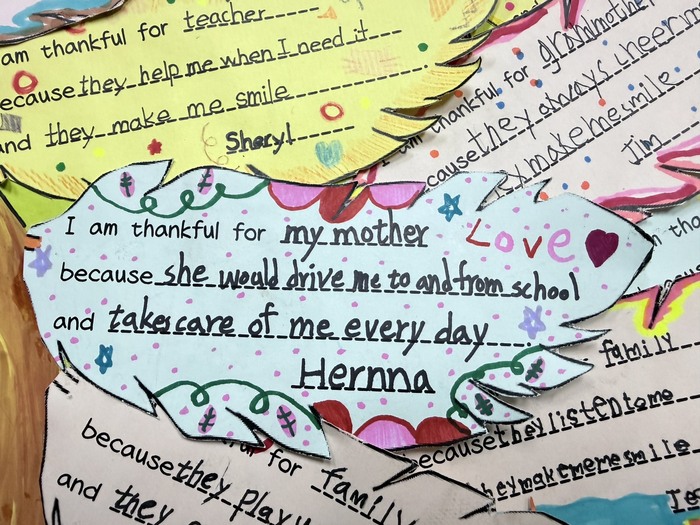 am thankful for teacher
ecause they help me when I need it
and they make me smile
Sheryl
thankful for grandmother
cause they always cheerin
makemesmile
Jim
I am thankful for my mother Love
because she would drive me to and from school
and takes care of me every day.
Hernna
family
because they listen to me
theymakememesmile
for family
because they play
and they